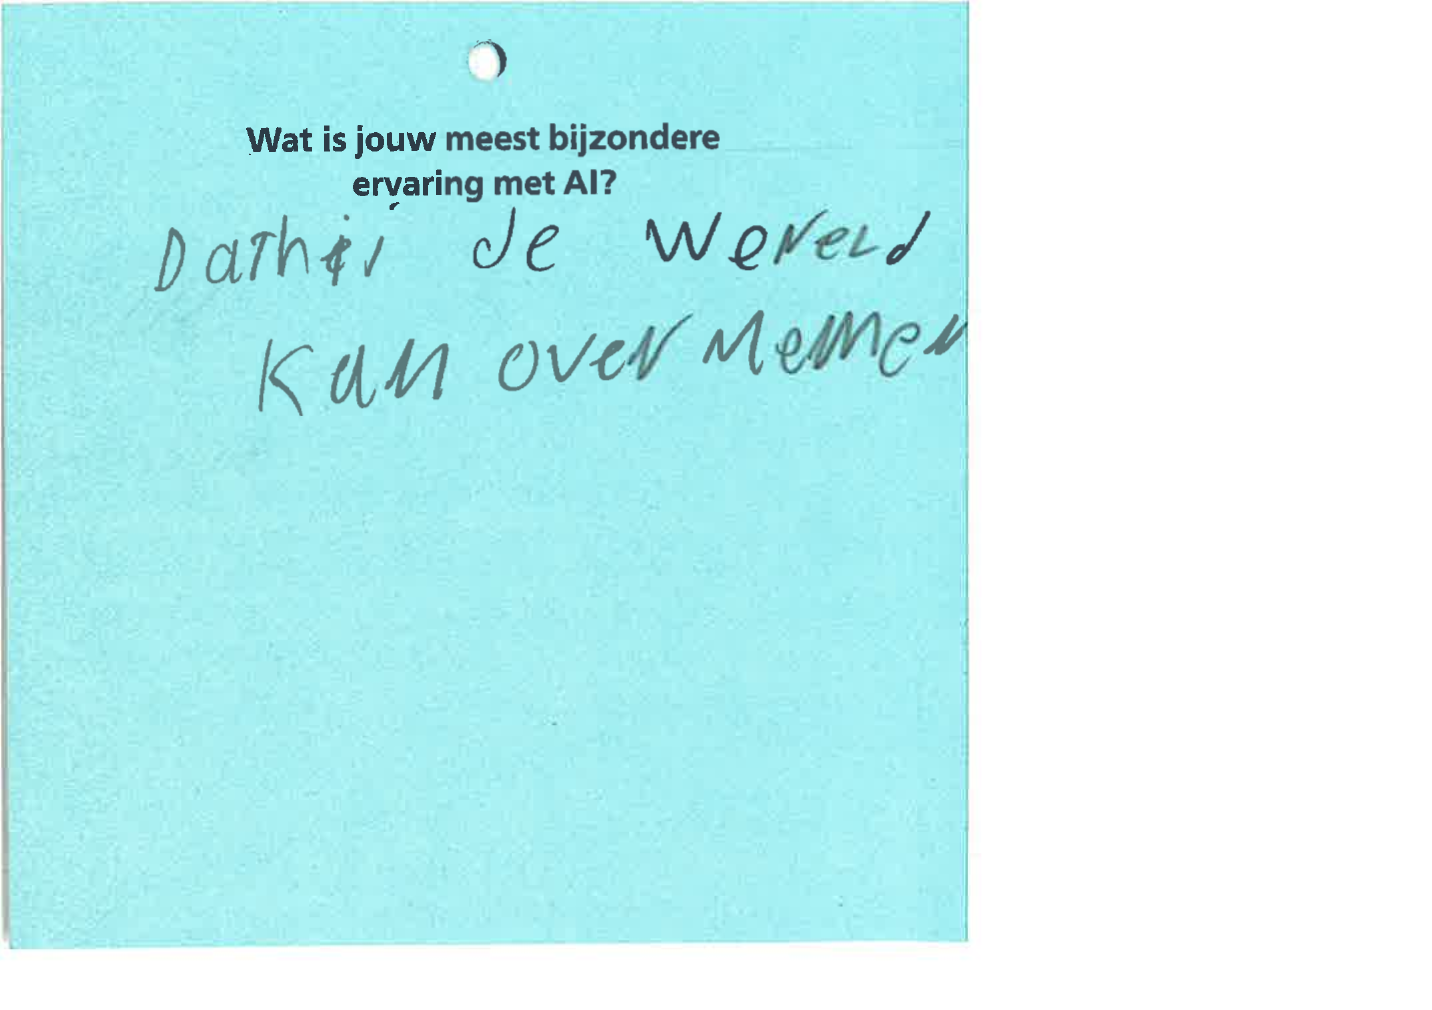 Wat is jouw meest bijzondere
ervaring met AI?
Dathij de wereld
Kan over nemen